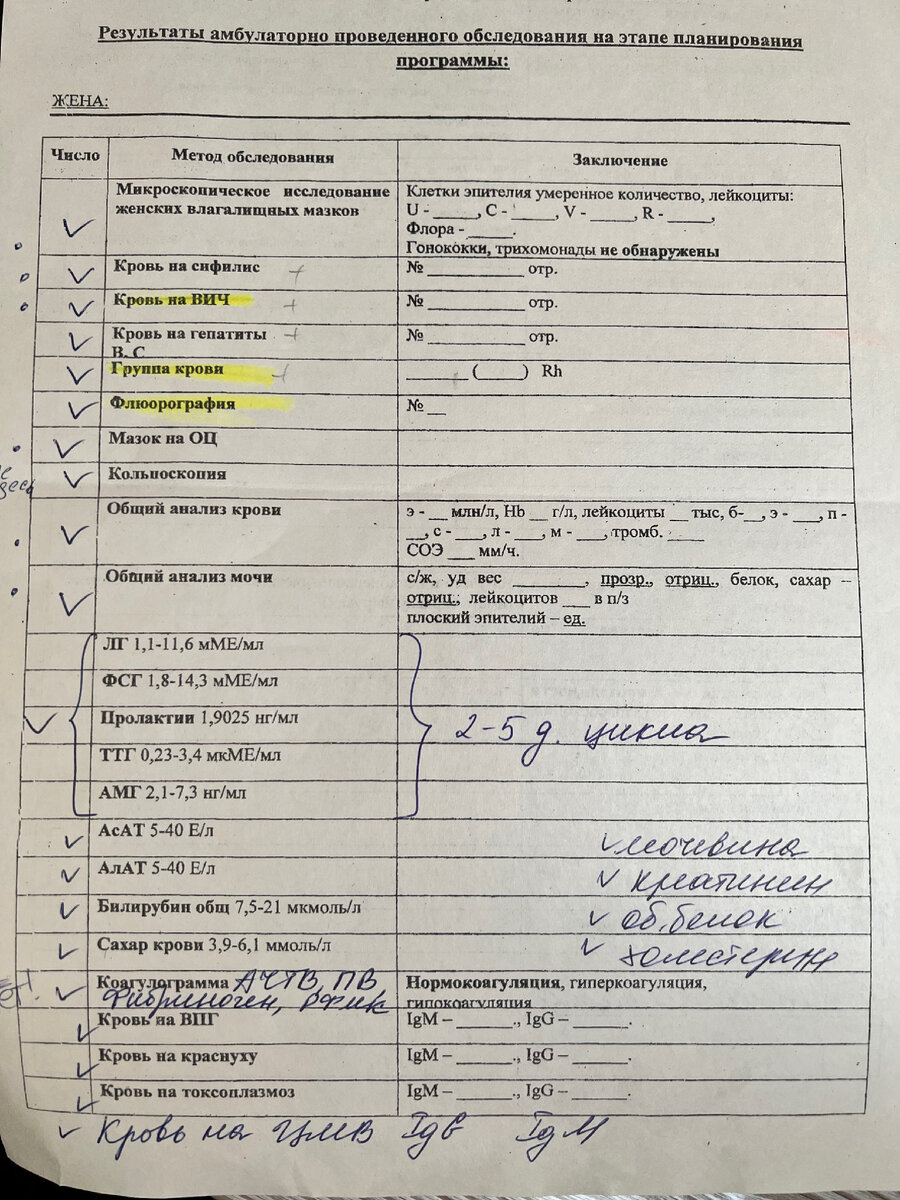 Результаты амбулаторно проведенного обследования на этапе планирования
программы:
ЖЕНА:
Число Метод обследования Заключение
Микроскопическое исследование женских влагалищных мазков
Клетки эпителия умеренное количество, лейкоциты:
U - _____, C - _____, V - _____, R - _____,
Флора - _____.
Гонококки, трихомонады не обнаружены
Кровь на сифилис + № __________ отр.
Кровь на ВИЧ + № __________ отр.
Кровь на гепатиты + № __________ отр.
В, С
Группа крови + ______ (____) Rh
Флюорография № __
Мазок на ОЦ
Кольпоскопия
Общий анализ крови
э - __ млн/л, Hb __ г/л, лейкоциты __ тыс, б-__, э - ___, п -
__, с - ___, л - ___, м - ___, тромб. ____
СОЭ ___ мм/ч.
Общий анализ мочи
с/ж, уд вес ________, прозр., отриц., белок, сахар –
отриц., лейкоцитов ___ в п/з
плоский эпителий – ед.
ЛГ 1,1-11,6 мМЕ/мл
ФСГ 1,8-14,3 мМЕ/мл
Пролактин 1,9025 нг/мл
2-5 д. цикла
ТТГ 0,23-3,4 мкМЕ/мл
АМГ 2,1-7,3 нг/мл
АсАТ 5-40 Е/л
мочевина
АлАТ 5-40 Е/л
креатинин
Билирубин общ 7,5-21 мкмоль/л
об. белок
Сахар крови 3,9-6,1 ммоль/л
холестерин
Коагулограмма АЧТВ, ПВ
Фибриноген, РФМК
Нормокоагуляция, гиперкоагуляция,
гипокоагуляция
Кровь на ВПГ IgM – ______., IgG – ______.
Кровь на краснуху IgM – ______., IgG – ______.
Кровь на токсоплазмоз IgM – ______., IgG – ______.
Кровь на ЦМВ IgG IgM